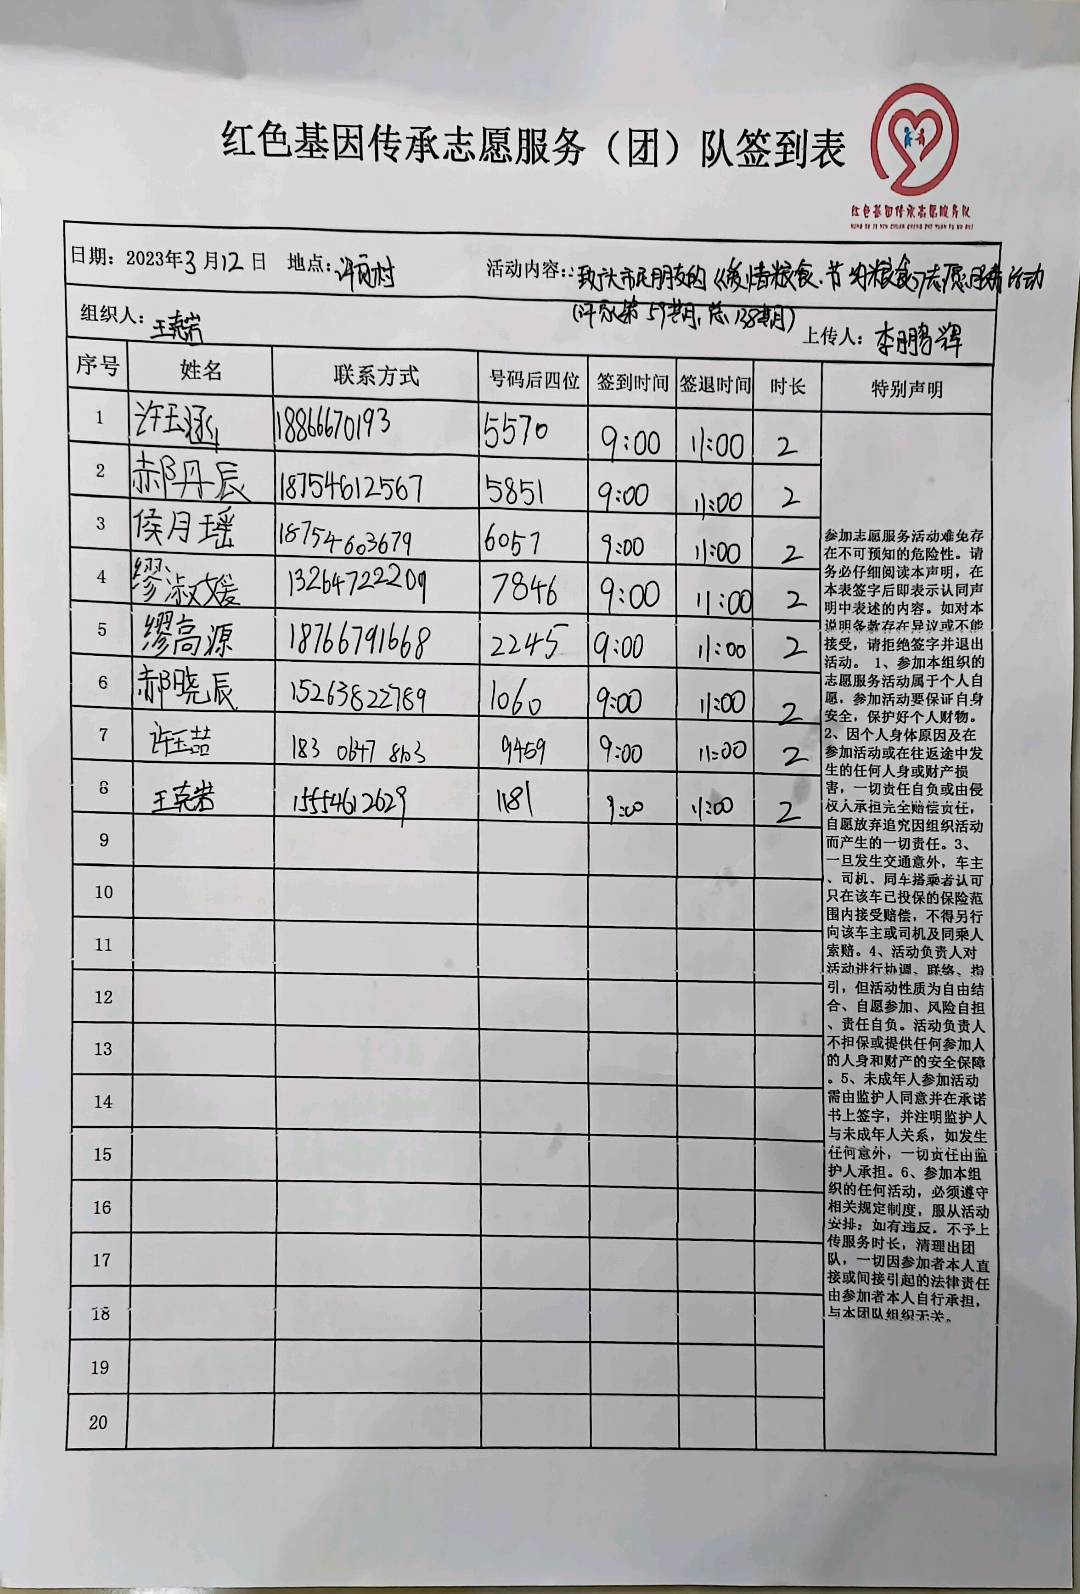 红色基因传承志愿服务（团）队签到表
红色基因传承志愿服务队
日期：2023年3月12日 地点：许家村 活动内容：致广大市民朋友的《爱惜粮食、节约粮食》志愿服务活动
(许家第59期，总138期)
组织人： 上传人：李鹏辉
序号 姓名 联系方式 号码后四位 签到时间 签退时间 时长 特别声明
1 许玉涵 18866670193 5570 9:00 11:00 2
2 郝丹辰 18754612567 5851 9:00 11:00 2
3 侯月瑶 18754603679 6057 9:00 11:00 2
4 缪淑媛 13264722209 7846 9:00 11:00 2
5 缪高源 18766791668 2245 9:00 11:00 2
6 郝晓辰 15263822789 1060 9:00 11:00 2
7 许玉喆 183 0647 8103 9459 9:00 11:00 2
8 15554612629 1181 9:00 11:00 2
9
10
11
12
13
14
15
16
17
18
19
20
参加志愿服务活动难免存
在不可预知的危险性。请
务必仔细阅读本声明，在
本表签字后即表示认同声
明中表述的内容。如对本
说明条款存在异议或不能
接受，请拒绝签字并退出
活动。1、参加本组织的
志愿服务活动属于个人自
愿，参加活动要保证自身
安全，保护好个人财物。
2、因个人身体原因及在
参加活动或在往返途中发
生的任何人身或财产损
害，一切责任自负或由侵
权人承担完全赔偿责任，
自愿放弃追究因组织活动
而产生的一切责任。3、
一旦发生交通意外，车主
、司机、同车搭乘者认可
只在该车已投保的保险范
围内接受赔偿，不得另行
向该车主或司机及同乘人
索赔。4、活动负责人对
活动进行协调、联络、指
引，但活动性质为自由结
合、自愿参加、风险自担
、责任自负。活动负责人
不担保或提供任何参加人
的人身和财产的安全保障
。5、未成年人参加活动
需由监护人同意并在承诺
书上签字，并注明监护人
与未成年人关系，如发生
任何意外，一切责任由监
护人承担。6、参加本组
织的任何活动，必须遵守
相关规定制度，服从活动
安排；如有违反，不予上
传服务时长，清理出团
队，一切因参加者本人直
接或间接引起的法律责任
由参加者本人自行承担，
与本团队组织无关。